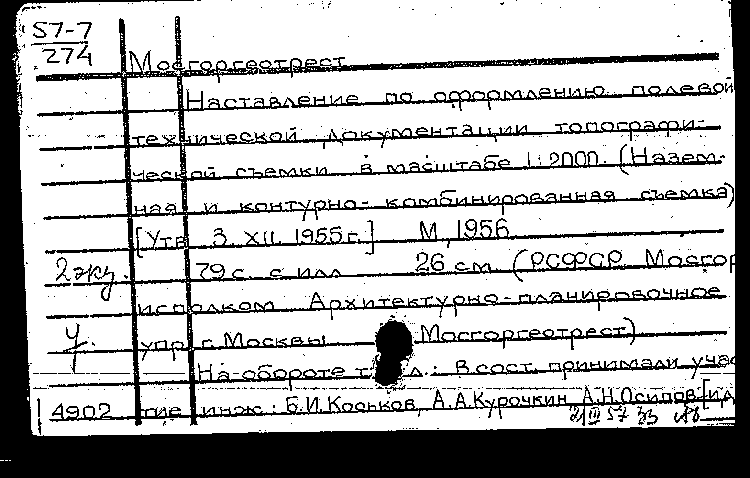 57-7
274
Мосгоргеотрест
Наставление по оформлению полевой
технической документации топографи-
ческой съемки в масштабе 1:2000. (Назем-
ная и контурно-комбинированная съемка)
[Утв 3. XII. 1955г.] М, 1956
2 экз. 79 с. с илл 26 см (РСФСР Мосгор
исполком Архитектурно-планировочное
упр г. Москвы Мосгоргеотрест)
На обороте т л.: В сост. принимали учас
4902 тие инж: Б.И.Коськов, А.А.Курочкин А.Н.Осипов [и д
21 III 57